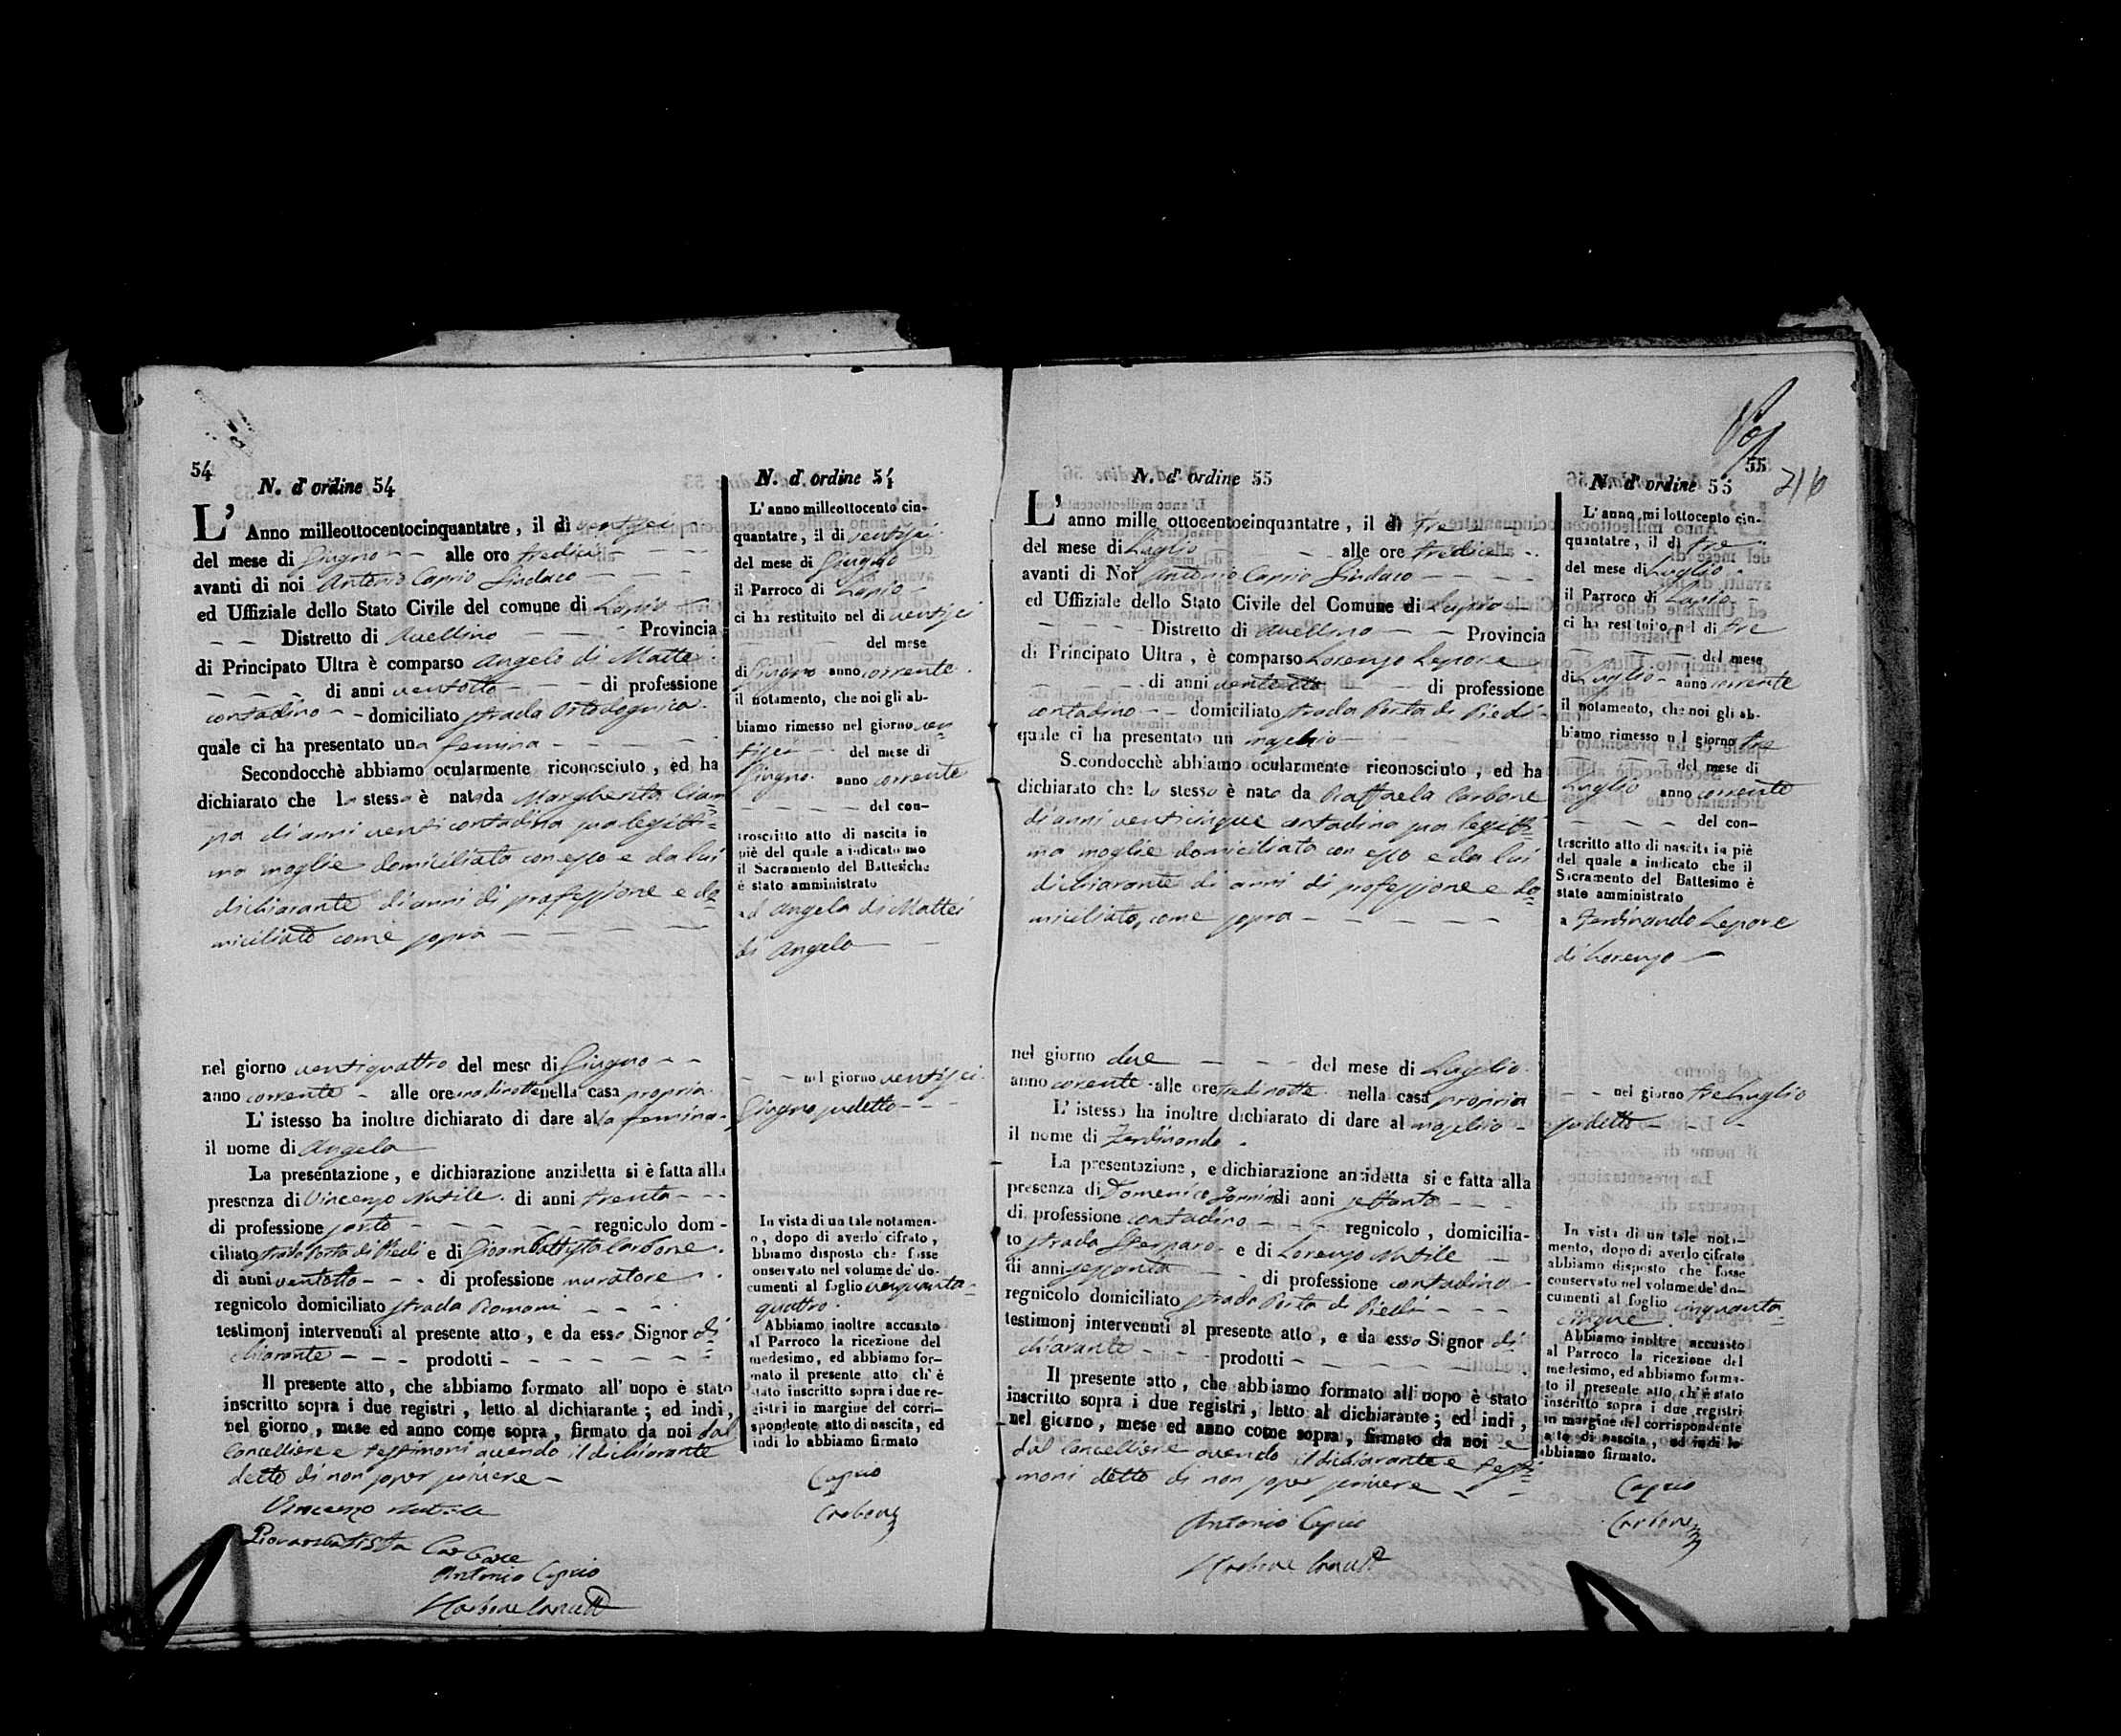 54
N. d'ordine 54
L' Anno milleottocentocinquantatre, il dì ventisei
del mese di Giugno - - alle ore tredici -
avanti di noi Antonio Caprio Sindaco - - -
ed Uffiziale dello Stato Civile del comune di Lapio -
- - Distretto di Avellino - - - Provincia
di Principato Ultra è comparso Angelo di Mattei
- - - di anni ventotto - - - di professione
contadino - - domiciliato strada
quale ci ha presentato una femina - - - - -
Secondocchè abbiamo ocularmente riconosciuto, ed ha
dichiarato che la stessa è nata da Margherita Ciam=
pa di anni venti contadina sua legitti=
ma moglie domiciliata con esso e da lui
dichiarante di anni di professione e do=
miciliato come sopra - - - - -
nel giorno ventiquattro del mese di Giugno - -
anno corrente - alle ore nella casa propria
L' istesso ha inoltre dichiarato di dare alla femina -
il nome di Angela
La presentazione, e dichiarazione anzidetta si è fatta alla
presenza di Vincenzo Nutile di anni trenta - - -
di professione sarto - - - - - - regnicolo domi-
ciliato strada Porta di Piedi e di Giambattista Carbone
di anni ventotto - - - di professione muratore
regnicolo domiciliato strada Romani - - -
testimonj intervenuti al presente atto, e da esso Signor di=
chiarante - - - prodotti - - - - - - -
Il presente atto, che abbiamo formato all' uopo è stato
inscritto sopra i due registri, letto al dichiarante; ed indi,
nel giorno, mese ed anno come sopra, firmato da noi dal
Cancelliere e testimoni avendo il dichiarante
detto di non saper scrivere -
Vincenzo Nutile
Giovanbattista Carbone
Antonio Caprio
Carbone
N. d' ordine 54
L' anno milleottocento cin-
quantatre, il di ventisei
del mese di Giugno
il Parroco di Lapio -
ci ha restituito nel di ventisei
- - - del mese
di Giugno anno corrente
il notamento, che noi gli ab-
biamo rimesso nel giorno ven
tisei - - del mese di
Giugno anno corrente
- - - - del con-
troscritto atto di nascita in
piè del quale a indicato mo
il Sacramento del Battesiche
è stato amministrato
ad Angela di Mattei
di Angelo - -
- - nel giorno ventisei
Giugno sudetto - - -
In vista di un tale notamen-
o, dopo di averlo cifrato,
bbiamo disposto che fosse
onservato nel volume de' do-
cumenti al foglio cinquanta=
quattro.
Abbiamo inoltre accusato
al Parroco la ricezione del
medesimo, ed abbiamo for-
mato il presente atto ch' è
stato inscritto sopra i due re-
gistri in margine del corri-
spondente atto di nascita, ed
indi lo abbiamo firmato
Caprio
Carbone
55
216
N. d' ordine 55
L' anno mille ottocentocinquantatre, il dì tre - -
del mese di Luglio - alle ore tredici -
avanti di Noi Antonio Caprio Sindaco - - - -
ed Uffiziale dello Stato Civile del Comune di Lapio -
- - - - Distretto di Avellino - - Provincia
di Principato Ultra, è comparso Lorenzo Lepore -
- - - - di anni ventiotto - di professione
contadino - - domiciliato strada Porta di Piedi -
quale ci ha presentato un maschio -
Secondocchè abbiamo ocularmente riconosciuto, ed ha
dichiarato che lo stesso è nato da Raffaela Carbone
di anni venticinque contadina sua legitti=
ma moglie domiciliata con esso e da lui
dichiarante di anni di professione e do=
miciliato, come sopra - - - - -
nel giorno due - - - - del mese di Luglio
anno corrente - alle ore nella casa propria
L' istesso ha inoltre dichiarato di dare al maschio -
il nome di Ferdinando -
La presentazione, e dichiarazione anzidetta si e fatta alla
presenza di Domenico di anni settanta - - -
di professione contadino - - - regnicolo, domicilia-
to strada e di Lorenzo Nutile -
di anni sessanta - - di professione contadino -
regnicolo domiciliato strada Porta di Piedi - - -
testimonj intervenuti al presente atto, e da esso Signor di=
chiarante - - - prodotti - - - - - -
Il presente atto, che abbiamo formato all' uopo è stato
inscritto sopra i due registri, letto al dichiarante; ed indi,
nel giorno, mese ed anno come sopra, firmato da noi e
dal Cancelliere avendo il dichiarante e testi=
moni detto di non saper scrivere - -
Antonio Caprio
Carbone
N. d' ordine 55
L' anno mi lottocento cin-
quantatre, il di tre -
del mese di Luglio
il Parroco di Lapio -
ci ha restituito nel di tre
- - - - del mese
di Luglio - anno corrente
il notamento, che noi gli ab-
biamo rimesso nel giorno tre
- - - - del mese di
Luglio anno corrente
- - - - del con-
trscritto atto di nascita in piè
del quale a indicato che il
Sacramento del Battesimo è
stato amministrato
a Ferdinando Lepore
di Lorenzo -
- - nel giorno tre Luglio
sudetto - - -
In vista di un tale nota-
mento, dopo di averlo cifrato
abbiamo disposto che fosse
conservato nel volume de' do-
cumenti al foglio cinquanta=
cinque.
Abbiamo inoltre accusato
al Parroco la ricezione del
medesimo, ed abbiamo forma-
to il presente atto ch' è stato
inscritto sopra i due registri
in margine del corrispondente
atto di nascita, ed indi lo
abbiamo firmato.
Caprio
Carbone